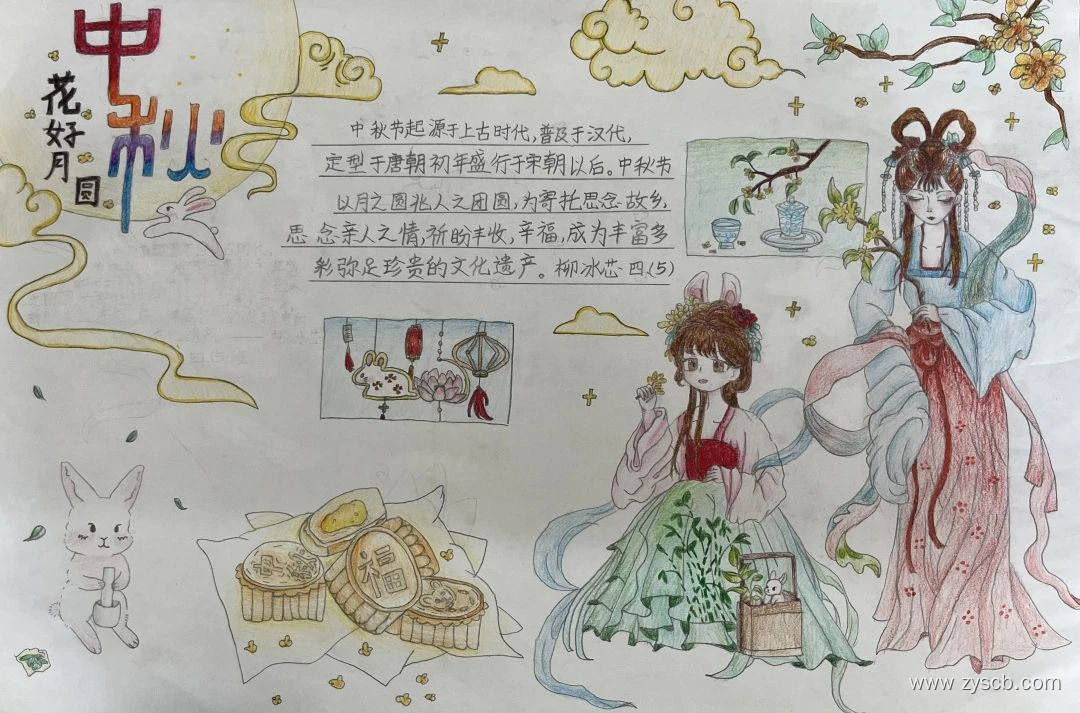 中秋
花好月圆
中秋节起源于上古时代,普及于汉代,
定型于唐朝初年盛行于宋朝以后。中秋节
以月之圆兆人之团圆,为寄托思念故乡,
思念亲人之情,祈盼丰收,辛福,成为丰富多
彩弥足珍贵的文化遗产。柳冰芯四(5)
福
www.zyscb.com